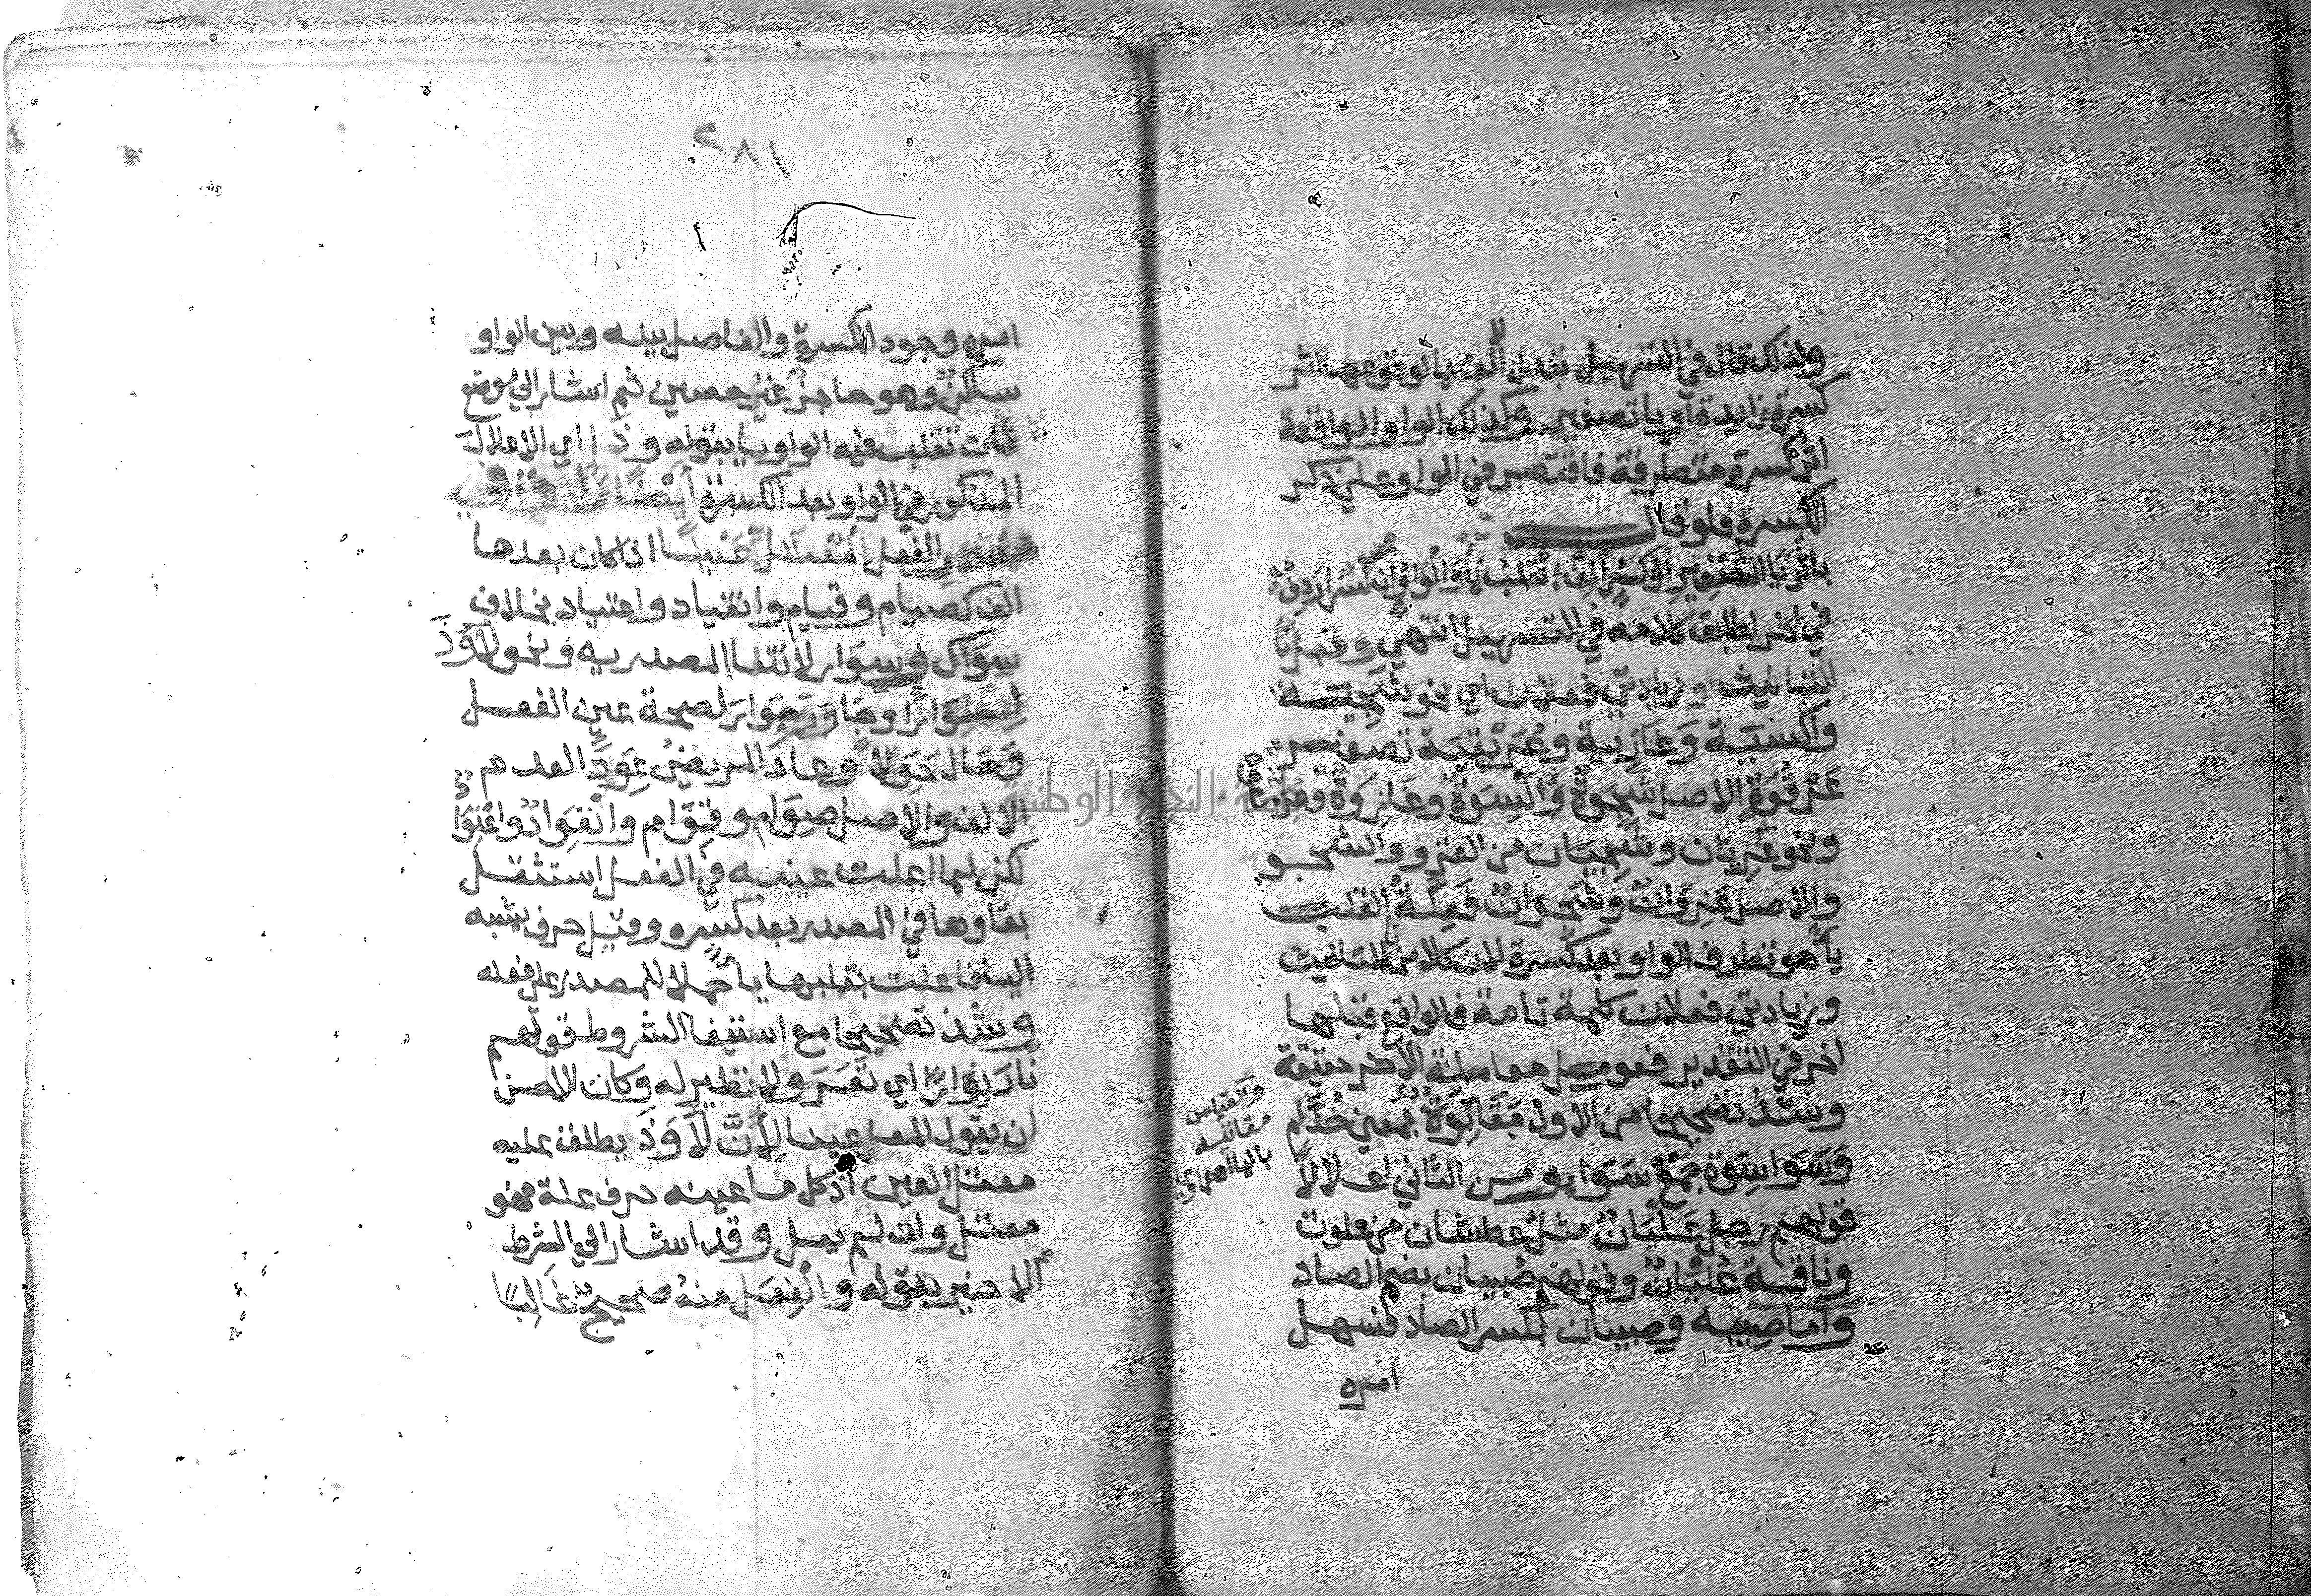 ولذلك قال في التسهيل تبدل الالف يا لوقوعها اثر
كسرة زايدة او يا تصغير وكذلك الواو الواقعة
اثر كسرة متطرفة فاقتصر في الواو على ذكر
الكسرة فلو قال
باثر يا التصغير او كسر الف تقلب يا والواو ان كسرا ردف
في اخر لطابق كلامه في التسهيل انتهى وقبل تا
التانيث او زيادتي فعلان اي نحو شجية
واكسية وغازية وعريقية تصغير
عرقوة الاصل شجوة واكسوة وغازوة وعريقوة
ونحو غزيان وشجيان من الغزو والشجو
والاصل غزوان وشجوان فعلة القلب
يا هو تطرف الواو بعد كسرة لان كلا من تا التانيث
وزيادتي فعلان كلمة تامة فالواقع قبلها
اخر في التقدير فعومل معاملة الاخر حقيقة
وشذ تصحيحا من الاول مقاتوة بمعنى خدام
وسواسوة جمع سواء ومن الثاني اعلالا
قولهم رجل عليان مثل عطشان من علوت
وناقة عليان وقولهم صبيان بضم الصاد
واما صبية وصبيان بكسر الصاد فسهل
امره
والقياس
مقاتية
باليا
جامعة النجاح الوطنية
٢٨١
امره وجود الكسرة والفاصل بينه وبين الواو
ساكن وهو حاجز غير حصين ثم اشار الى موضع
ثان تقلب فيه الواو يا بقوله وذا اي الاعلال
المذكور في الواو بعد الكسرة ايضا راوا في
مصدر الفعل المعتل عينا اذا كان بعدها
الف كصيام وقيام وانقياد واعتياد بخلاف
سواك وسوار لانتفا المصدرية ونحو لاوذ
لواذا وجاور جوار لصحة عين الفعل
وحال حولا وعاد المريض عودا لعدم
الالف والاصل صوام وقوام وانقواد واعتواد
لكن لما اعلت عينه في الفعل استثقل
بقاوها في المصدر بعد كسره وقبل حرف يشبه
اليا فاعلت بقلبها يا حملا للمصدر على فعله
وشذ تصحيحا مع استيفا الشروط قولهم
نار نوارا اي نفر ولا نظير له وكان الاحسن
ان يقول المعل عينا لان لاوذ يطلق عليه
معتل العين اذ كل ما عينه حرف علة فهو
معتل وان لم يعل وقد اشار الى الشرط
الاخير بقوله والفعل منه صحيح غالبا